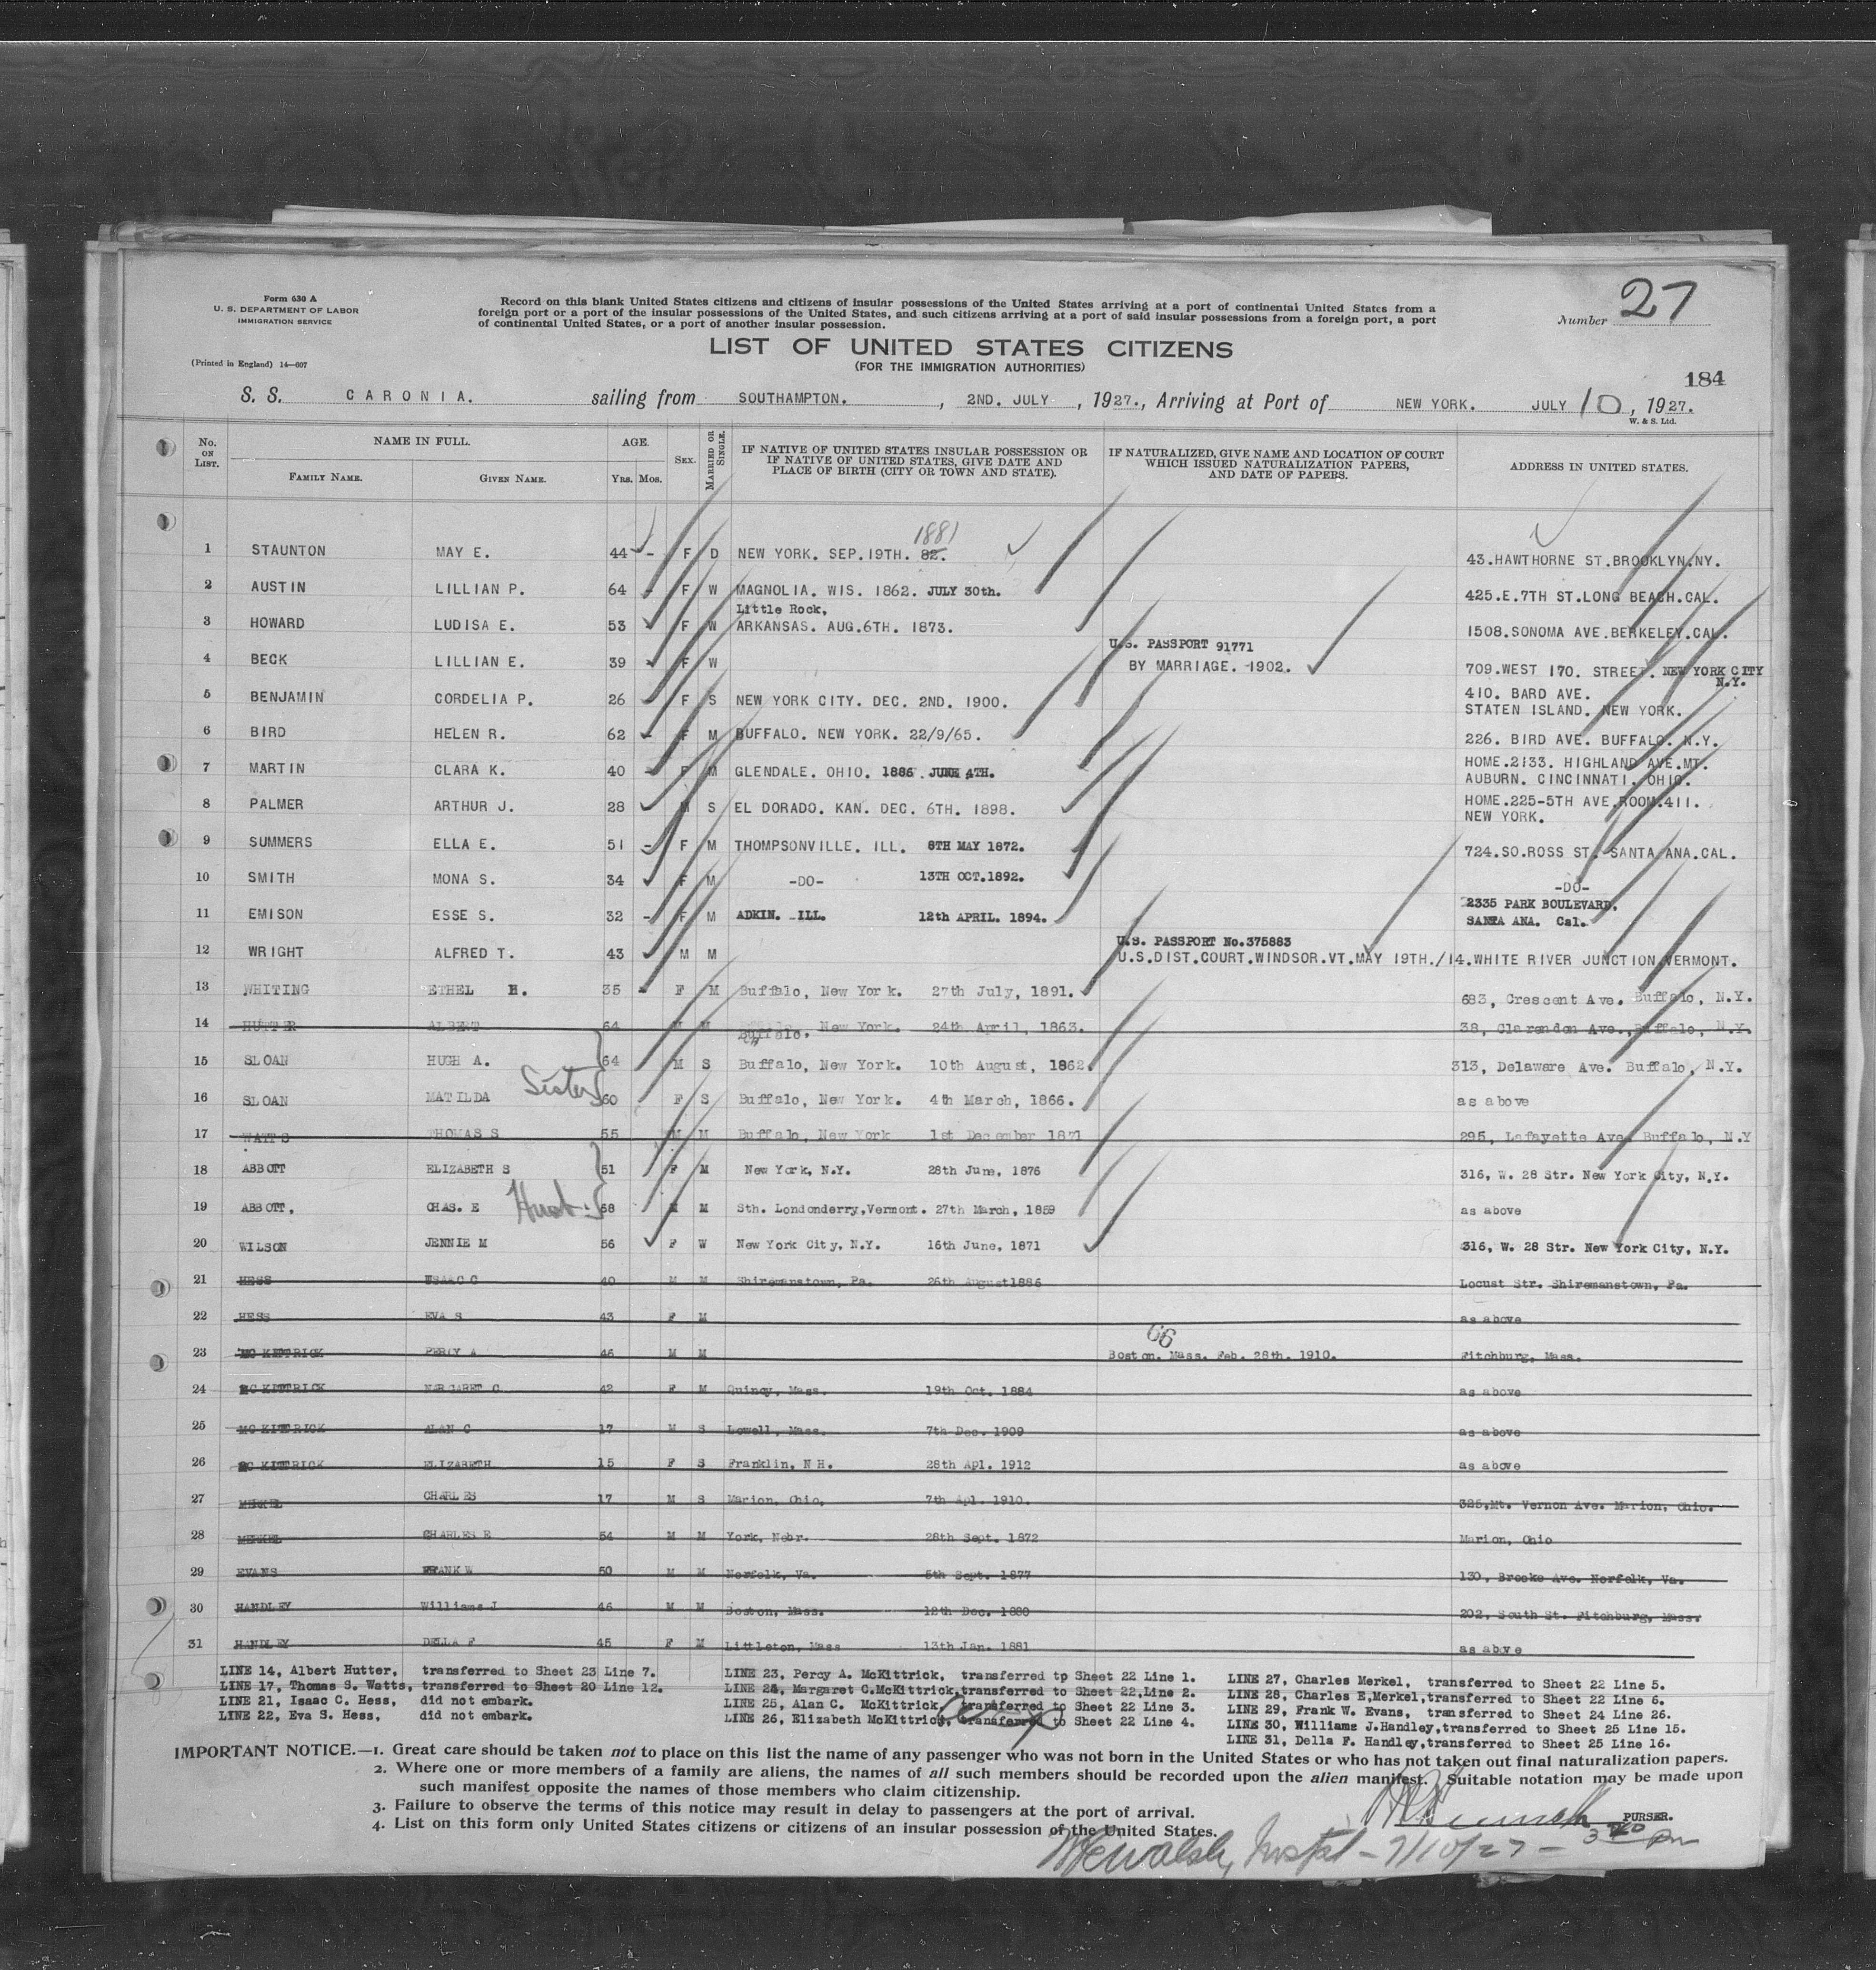 Form 630 A
U. S. DEPARTMENT OF LABOR
IMMIGRATION SERVICE
(Printed in England) 14—607
Record on this blank United States citizens and citizens of insular possessions of the United States arriving at a port of continental United States from a
foreign port or a port of the insular possessions of the United States, and such citizens arriving at a port of said insular possessions from a foreign port, a port
of continental United States, or a port of another insular possession.
Number 27
LIST OF UNITED STATES CITIZENS
(FOR THE IMMIGRATION AUTHORITIES)
184
S. S. CARONIA. sailing from SOUTHAMPTON. , 2ND. JULY , 1927., Arriving at Port of NEW YORK. JULY 10, 1927.
W. & S. Ltd.
No. ON LIST. NAME IN FULL. FAMILY NAME. GIVEN NAME. AGE. Yrs. Mos. SEX. MARRIED OR SINGLE. IF NATIVE OF UNITED STATES INSULAR POSSESSION OR IF NATIVE OF UNITED STATES, GIVE DATE AND PLACE OF BIRTH (CITY OR TOWN AND STATE). IF NATURALIZED, GIVE NAME AND LOCATION OF COURT WHICH ISSUED NATURALIZATION PAPERS, AND DATE OF PAPERS. ADDRESS IN UNITED STATES.
1881
1 STAUNTON MAY E. 44 - F D NEW YORK. SEP.19TH. 82. 43.HAWTHORNE ST.BROOKLYN.NY.
2 AUSTIN LILLIAN P. 64 - F W MAGNOLIA. WIS. 1862. JULY 30th. 425.E.7TH ST.LONG BEACH.CAL.
Little Rock,
3 HOWARD LUDISA E. 53 F W ARKANSAS. AUG.6TH. 1873. 1508.SONOMA AVE.BERKELEY.CAL.
U.S. PASSPORT 91771
4 BECK LILLIAN E. 39 F W BY MARRIAGE. 1902. 709.WEST 170. STREET. NEW YORK CITY
N.Y.
5 BENJAMIN CORDELIA P. 26 F S NEW YORK CITY. DEC. 2ND. 1900. 410. BARD AVE.
STATEN ISLAND. NEW YORK.
6 BIRD HELEN R. 62 - F M BUFFALO. NEW YORK. 22/9/65. 226. BIRD AVE. BUFFALO. N.Y.
7 MARTIN CLARA K. 40 - F M GLENDALE. OHIO. 1886 JUNE 4TH. HOME.2133. HIGHLAND AVE.MT.
AUBURN. CINCINNATI. OHIO.
8 PALMER ARTHUR J. 28 M S EL DORADO. KAN. DEC. 6TH. 1898. HOME.225-5TH AVE.ROOM.411.
NEW YORK.
9 SUMMERS ELLA E. 51 - F M THOMPSONVILLE. ILL. 8TH MAY 1872. 724.SO.ROSS ST. SANTA ANA.CAL.
10 SMITH MONA S. 34 F M -DO- 13TH OCT.1892. -DO-
11 EMISON ESSE S. 32 - F M ADKIN. ILL. 12th APRIL. 1894. 2335 PARK BOULEVARD,
SANTA ANA. Cal.
U.S. PASSPORT No.375883
12 WRIGHT ALFRED T. 43 M M U.S.DIST.COURT.WINDSOR.VT.MAY 19TH./14. WHITE RIVER JUNCTION.VERMONT.
13 WHITING ETHEL H. 35 F M Buffalo, New York. 27th July, 1891. 683, Crescent Ave. Buffalo, N.Y.
14 HUTTER ALBERT 64 M M Buffalo, New York. 24th April, 1863. 38, Clarendon Ave., Buffalo, N.Y.
15 SLOAN HUGH A. 64 M S Buffalo, New York. 10th August, 1862. 313, Delaware Ave. Buffalo, N.Y.
16 SLOAN MATILDA Sister 60 F S Buffalo, New York. 4th March, 1866. as above
17 WATTS THOMAS S 55 M M Buffalo, New York 1st December 1871 295, Lafayette Ave. Buffalo, N.Y
18 ABBOTT ELIZABETH S 51 F M New York, N.Y. 28th June, 1876 316, W. 28 Str. New York City, N.Y.
19 ABBOTT. CHAS. E Husb. 68 M M Sth. Londonderry,Vermont. 27th March, 1859 as above
20 WILSON JENNIE M 56 F W New York City, N.Y. 16th June, 1871 316, W. 28 Str. New York City, N.Y.
21 HESS ISAAC C 40 M M Shiremanstown, Pa. 26th August1886 Locust Str. Shiremanstown, Pa.
22 HESS EVA S 43 F M as above
66
23 MC KITTRICK PERCY A 46 M M Boston. Mass. Feb. 28th. 1910. Fitchburg, Mass.
24 MC KITTRICK MARGARET C. 42 F M Quincy, Mass. 19th Oct. 1884 as above
25 MC KITTRICK ALAN C 17 M S Lowell, Mass. 7th Dec. 1909 as above
26 MC KITTRICK ELIZABETH 15 F S Franklin, NH. 28th Apl. 1912 as above
27 MERKEL CHARLES 17 M S Marion, Ohio, 7th Apl. 1910. 325,Mt. Vernon Ave. Marion, Ohio.
28 MERKEL CHARLES E 54 M M York, Nebr. 28th Sept. 1872 Marion, Ohio
29 EVANS FRANK W 50 M M Norfolk, Va. 5th Sept. 1877 130, Brooke Ave. Norfolk, Va.
30 HANDLEY Williams J 46 M M Boston, Mass. 12th Dec. 1880 202, South St. Fitchburg, Mass.
31 HANDLEY DELLA F 45 F M Littleton, Mass 13th Jan. 1881 as above
LINE 14, Albert Hutter, transferred to Sheet 23 Line 7.
LINE 17, Thomas S. Watts, transferred to Sheet 20 Line 12.
LINE 21, Isaac C. Hess, did not embark.
LINE 22, Eva S. Hess, did not embark.
LINE 23, Percy A. McKittrick, transferred to Sheet 22 Line 1.
LINE 24, Margaret C.McKittrick,transferred to Sheet 22,Line 2.
LINE 25, Alan C. McKittrick, transferred to Sheet 22 Line 3.
LINE 26, Elizabeth McKittrick, transferred to Sheet 22 Line 4.
LINE 27, Charles Merkel, transferred to Sheet 22 Line 5.
LINE 28, Charles E,Merkel,transferred to Sheet 22 Line 6.
LINE 29, Frank W. Evans, transferred to Sheet 24 Line 26.
LINE 30, Williams J.Handley,transferred to Sheet 25 Line 15.
LINE 31, Della F. Handley,transferred to Sheet 25 Line 16.
IMPORTANT NOTICE.—1. Great care should be taken not to place on this list the name of any passenger who was not born in the United States or who has not taken out final naturalization papers.
2. Where one or more members of a family are aliens, the names of all such members should be recorded upon the alien manifest. Suitable notation may be made upon
such manifest opposite the names of those members who claim citizenship.
3. Failure to observe the terms of this notice may result in delay to passengers at the port of arrival.
4. List on this form only United States citizens or citizens of an insular possession of the United States.
PURSER.
Walsh, 7/10/27 -